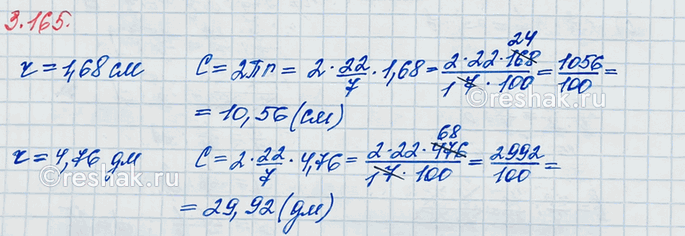 3.165.
r = 1,68 см C = 2πr = 2 · 22/7 · 1,68 = 2·22·168 24/1 7 · 100 = 1056/100 =
= 10,56 (см)
r = 4,76 дм C = 2 · 22/7 · 4,76 = 2·22·476 68/1 7 · 100 = 2992/100 =
= 29,92 (дм)
©reshak.ru
©reshak.ru
©reshak.ru